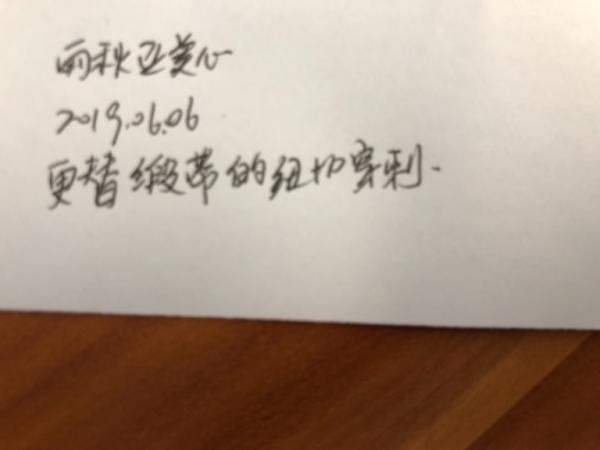 雨秋亚美心
2019.06.06
更替缎带的纽切穿刺.